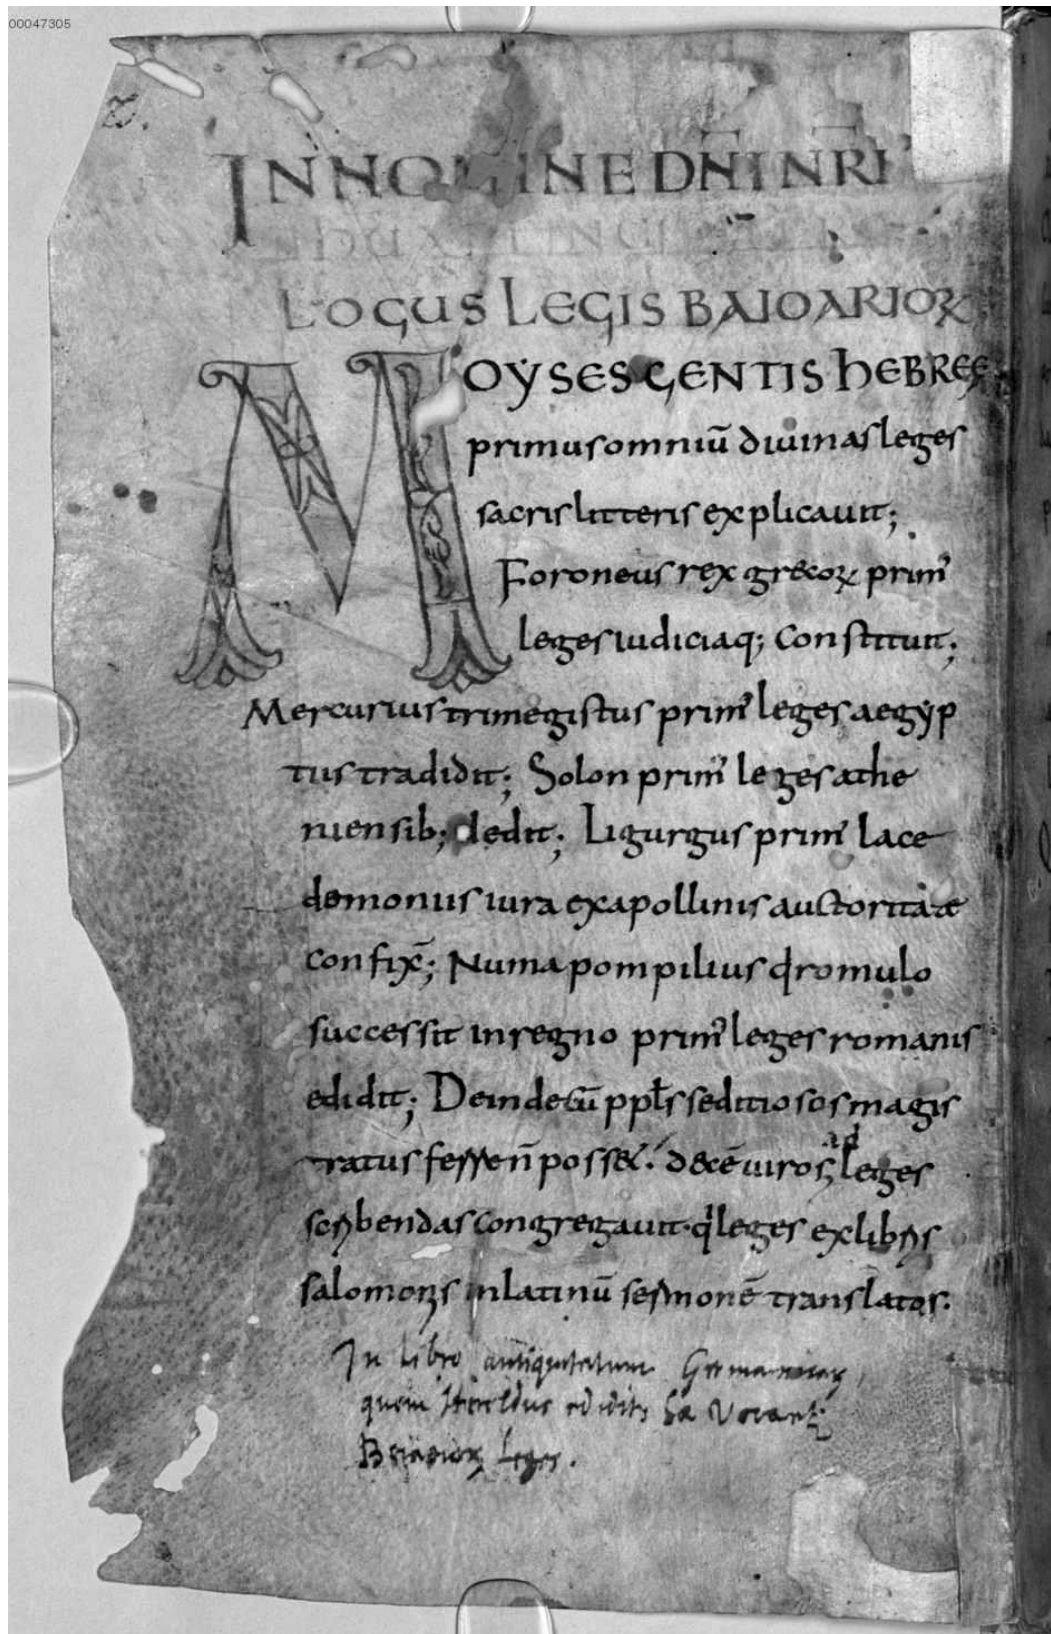 00047305
IN NOMINE DN̄I NR̄I
LOGUS LEGIS BAIOARIOꝜ
MOẎSES GENTIS hEBREĘ
primus omniū diuinas leges
sacris litteris explicauit;
Foroneus rex grecoꝝ prim᾽
leges iudiciaq; constituit;
Mercurius trimegistus prim᾽ leges aegẏp
tus tradidit; Solon prim᾽ leges athe
niensib; dedit; Ligurgus prim᾽ lace
demoniis iura ex apollinis auctoritate
confix̄; Numa pompilius q romulo
successit in regno prim᾽ leges romanis
edidit; Deinde cū pplś seditiosos magis
tratus ferren̄ posset. decē uiros ad leges
scribendas congregauit. q leges ex libris
salomonis in latinū sermonē translatas.
In libro antiquitatum Germanicaꝝ
quem Heroldus edidit
Leges.